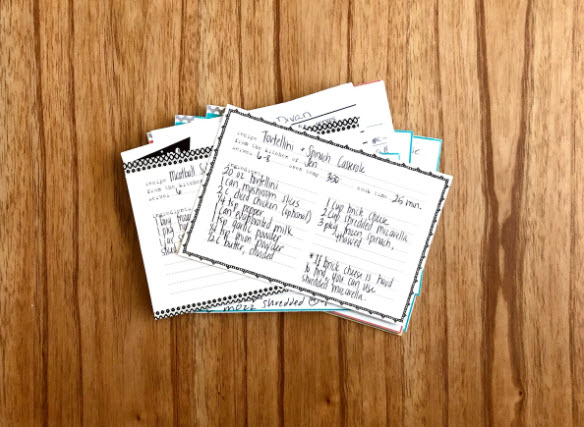 Divan
recipe Tortellini + Spinach Casserole
from the kitchen of Jen
serves 6-8 oven temp 350 cook time 25 min.
ingredients
20 oz tortellini
1 can mushroom slices
2 C diced chicken (optional)
1/4 tsp pepper
1 can evaporated milk
garlic powder
onion powder
butter, divided
1 cup brick cheese
2 cup shredded mozarella
3 pkg frozen spinach,
thawed
* If brick cheese is hard
to find you can use
shredded mozarella.
recipe Meatball
from the kitchen
serves 6
1 pkg
mozz shredded